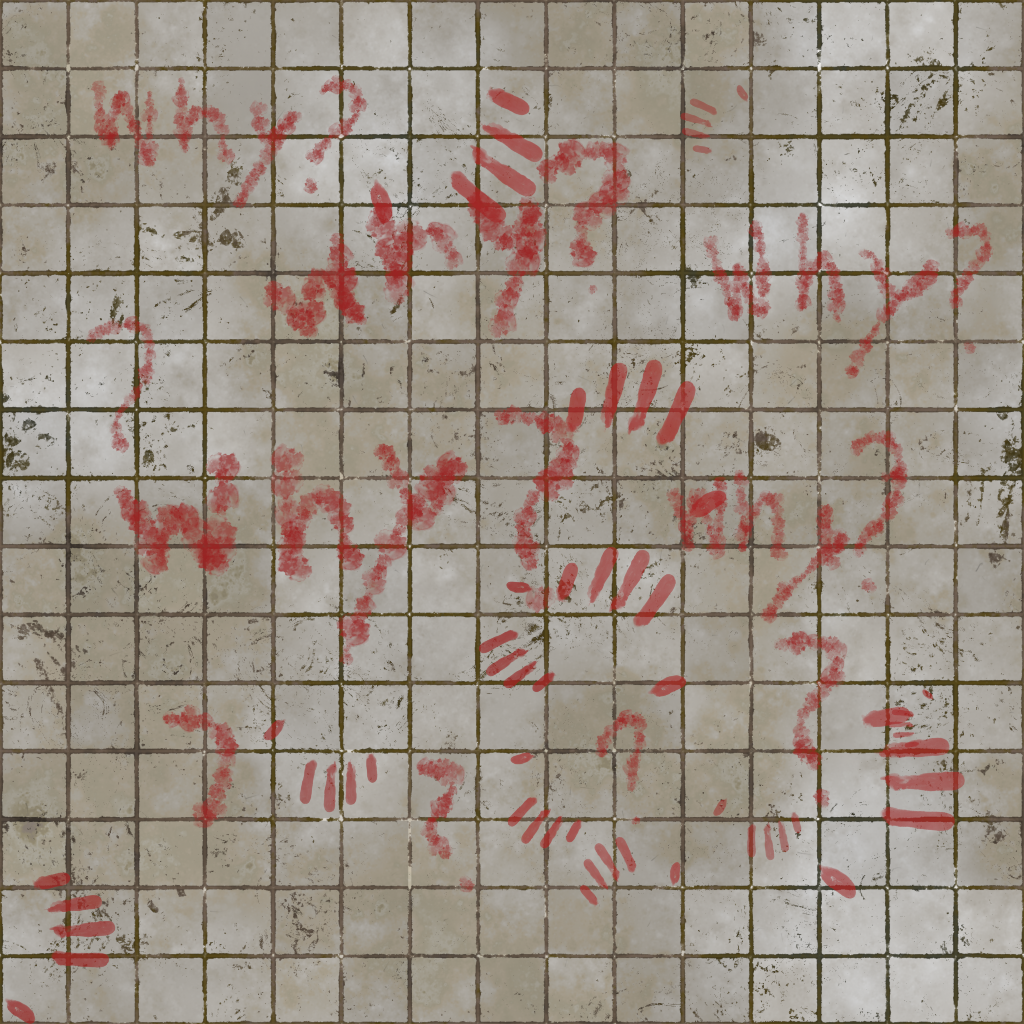 Why?
why?
Why?
?
why?
why?
?
?
?
?